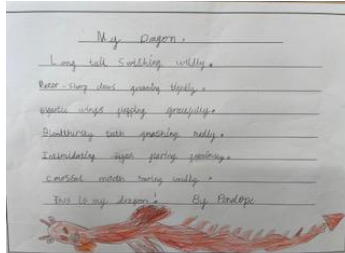 My Dragon.
Long tail swishing wildly.
Razor-sharp claws growing tightly.
gigantic wings flapping gracefully.
Bloodthirsty teeth gnashing madly.
Intimidating eyes glaring
colossal mouth roaring loudly.
This is my dragon! By Penelope